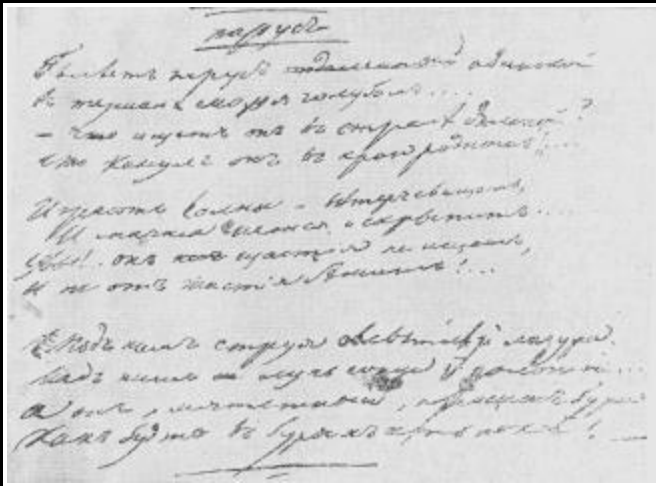 парусъ
Бѣлѣетъ парусъ одинокой
Въ туманѣ моря голубомъ....
– Что ищетъ онъ въ странѣ далекой?
Что кинулъ онъ въ краю родномъ?...
Играютъ волны – вѣтеръ свищетъ,
И мачта гнется и скрыпитъ....
Увы! онъ щастія не ищетъ,
И не отъ щастія бѣжитъ!...
Подъ нимъ струя свѣтлѣй лазури.
Надъ нимъ лучь солнца золотой...
А онъ, мятежный, проситъ бури
Какъ будто въ буряхъ есть покой! —